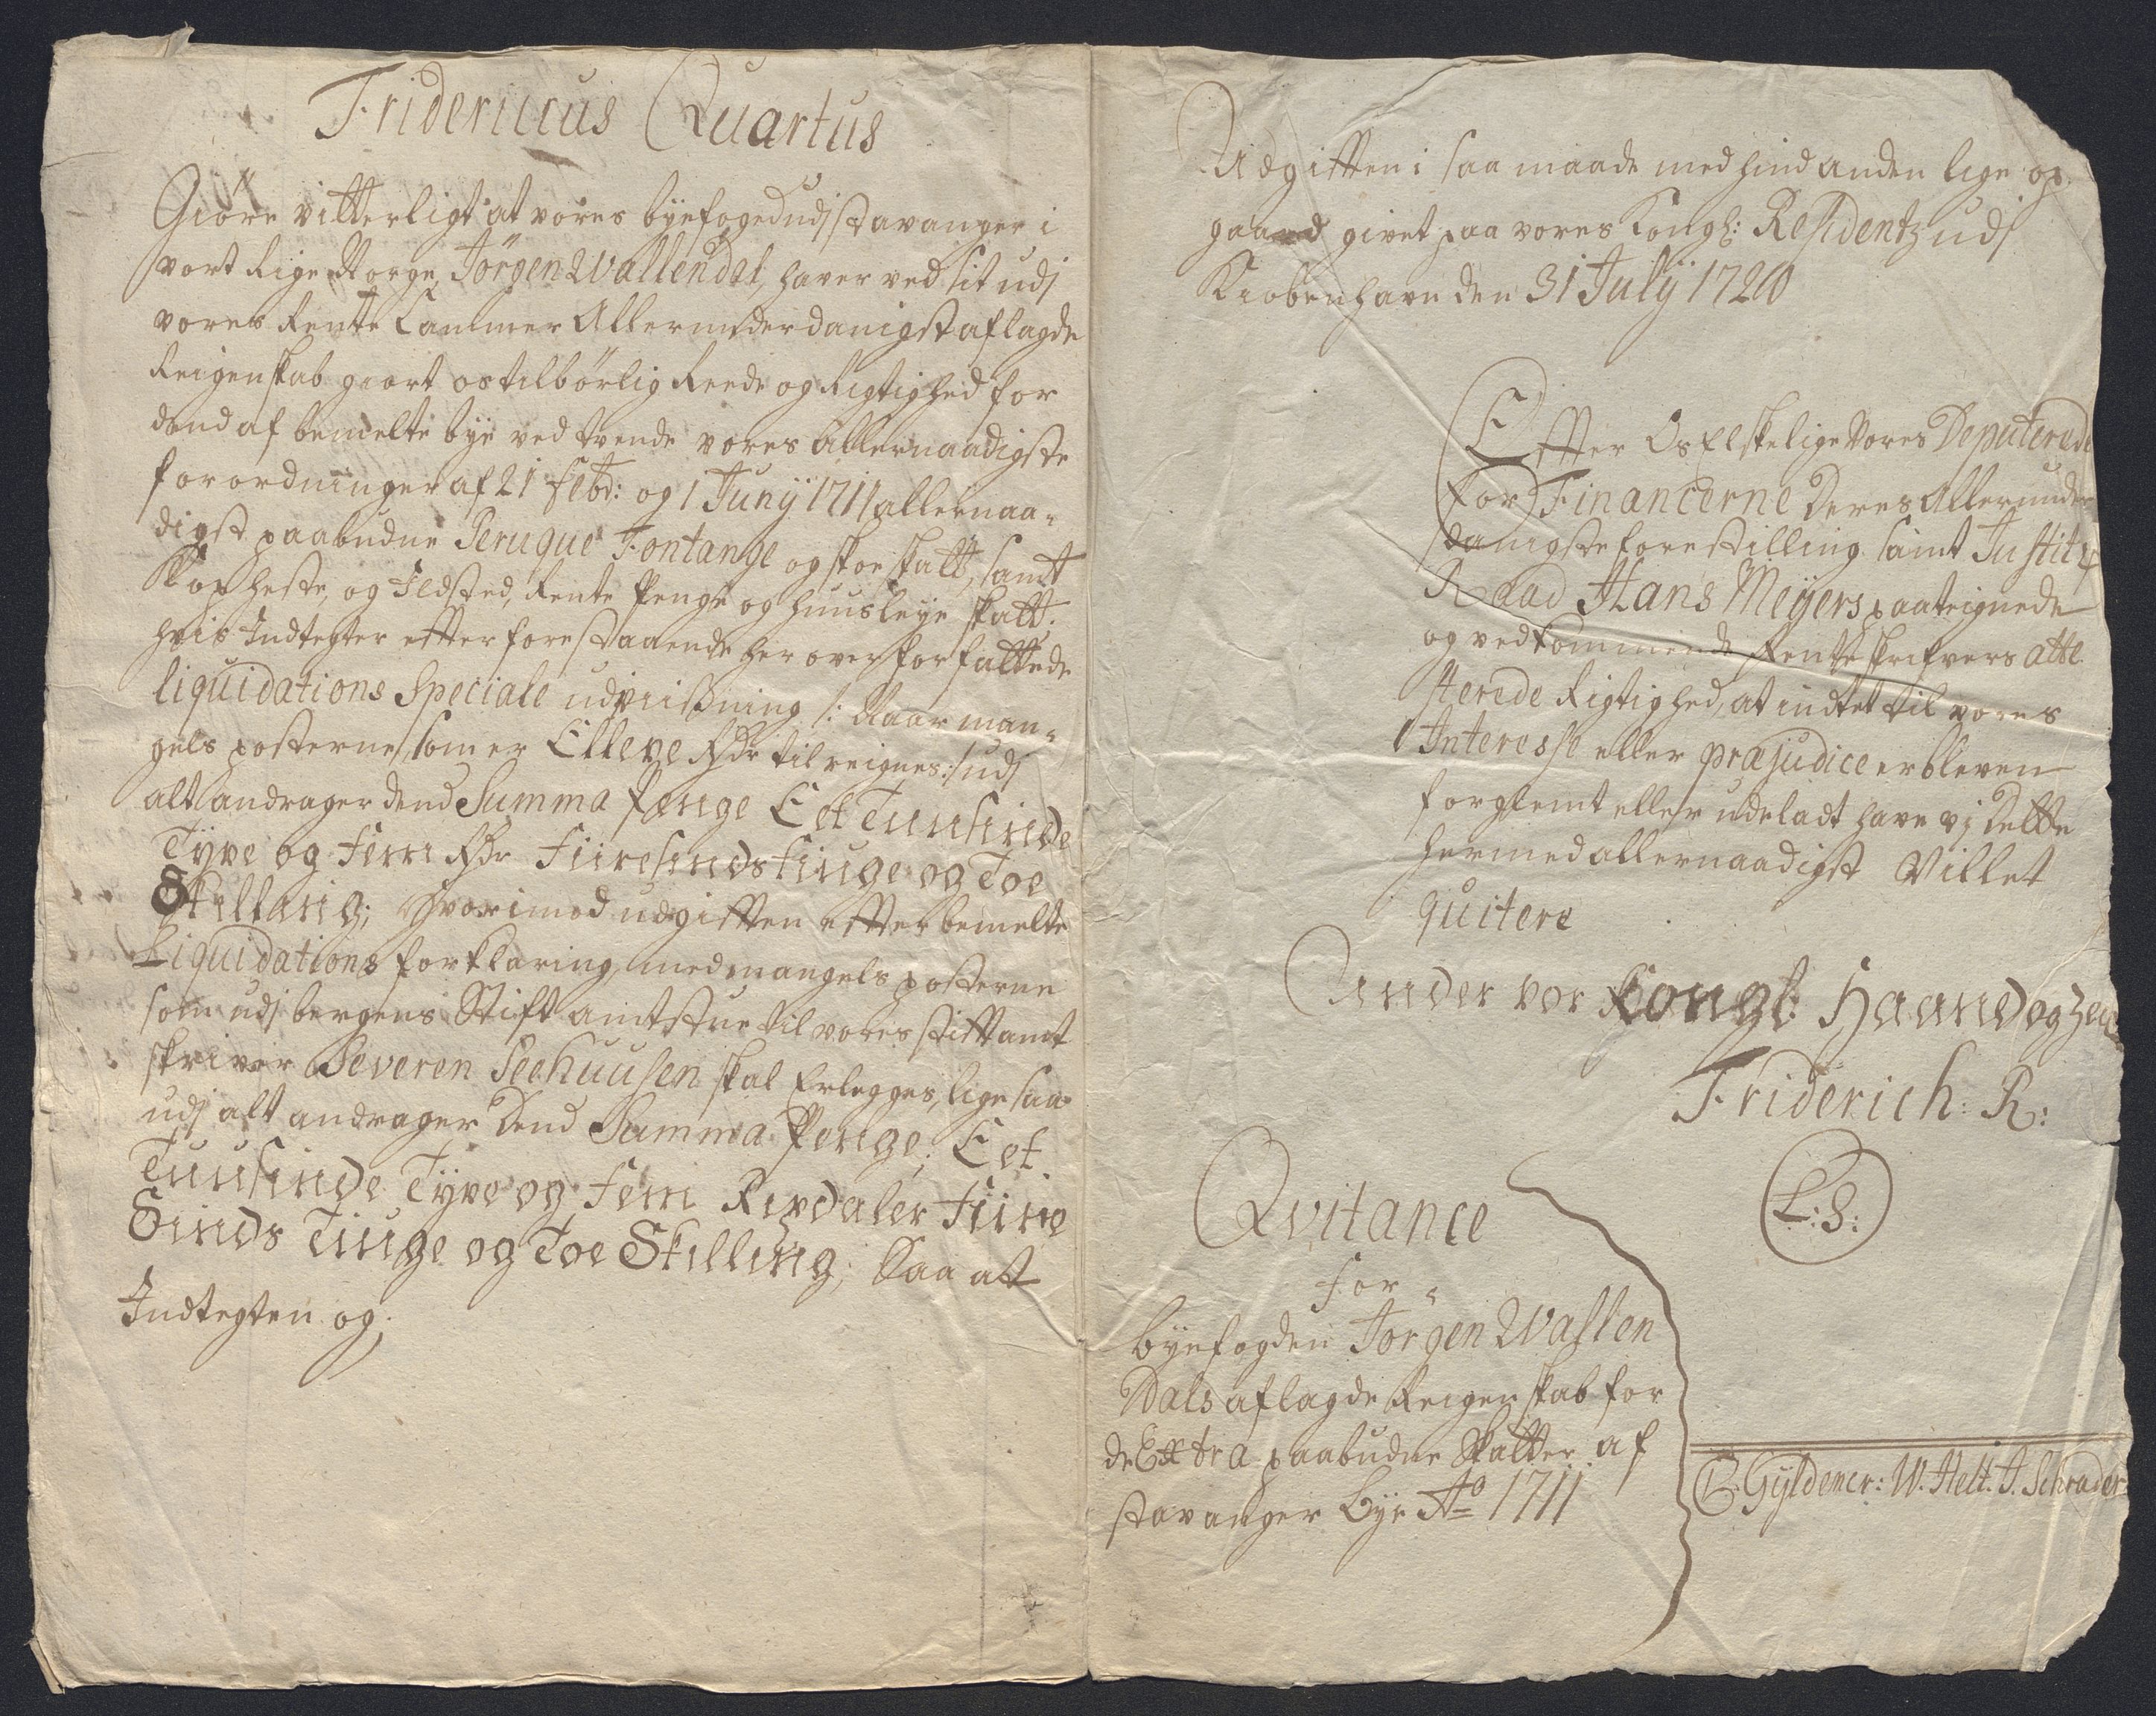 Fridericus Quartus
Giöre vitterligt at vores byefoged udj Stavanger i
vort Rige Norge, Jörgen Wallendal, haver ved sit udj
vores Rente Cammer Allerunderdanigst aflagde
Reigenskab giort os tilbörlig Reede og Rigtighed for
dend af bemelte bye ved tvende vores Allernaadigste
forordninger af 21 Febr: og 1 Junij 1711 allernaa-
digst paabudne Peruque Fontange og skoe skatt, samt
Kop heste, og Ildsted, Rente Penge og huusleye skatt.
hvis Indtegter efter forestaaende her over forfattede
liquidations Speciale udviisning /: Naar man-
gels posterne, som er Elleve Rdr tilreignes :/ udj
alt andrager dend Summa Penge Eet Tuusinde
Tyve og Fem Rdr Fiiresinds tiuge og Toe
Skilling; Hvorimod udgifften efter bemelte
Liquidations forklaring, med mangels posterne
som udj bergens Stift amtstue til vores stiftamt
skriver Severen Seehuusen skal Erlegges, lige saa
udj alt andrager Dend Summa Penge; Eet
Tuusinde Tyve og Fem Rixdaler Fiire
Sinds Tiuge og Toe Skilling; Saa at
Indtegten og
Udgifften i saa maade med hind anden lige op
gaaed givet paa vores Kongl: Residentz udj
Kiöbenhavn den 31 July 1720
Effter Os Elskelige Vores Deputerede
for Financerne Deres Allerunder
danigste forestilling samt Justitz
Raad Hans Meyers paateignede
og vedkommende Renteskrifvers atte
sterede Rigtighed, at indtet til vores
Interesse eller præjudice er bleven
forglemt eller udeladt have vj Dette
hermed allernaadigst Villet
quitere
Under vor Kongl: Haand og Zeig
Friderich: R:
L: S:
Qvitance
for
byefogden Jörgen Wallen
Dals aflagde Reigenskab for
de Extra paabudne Skatter af
Stavanger Bye Ao 1711
C. Gyldencr: W. Helt. J. Schrader